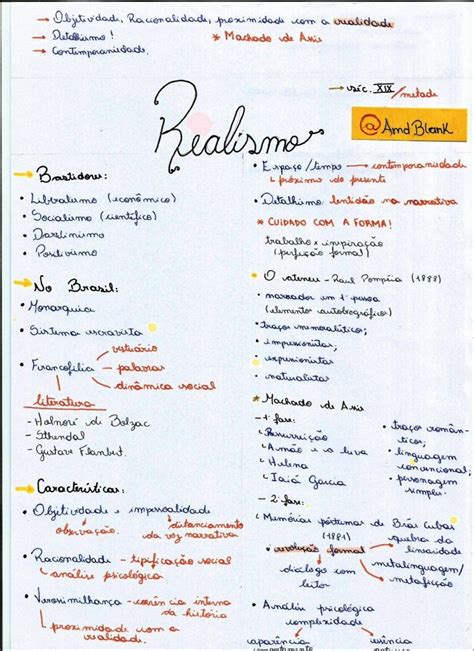 → Objetividade, Racionalidade, proximidade com a realidade
→ Detalhismo!
* Machado de Assis
→ Contemporaneidade.
→ séc. XIX/metade
Realismo
@AmdBlank
→ Bastidores:
• Liberalismo (econômico)
• Socialismo (científico)
• Darwinismo
• Positivismo
→ No Brasil:
• Monarquia
• Sistema escravista
• Francofilia
vestuário
palavras
dinâmica social
literatura
- Honoré de Balzac
- Sthendal
- Gustav Flaubert.
→ Características:
• Objetividade e impersoalidade
observação.
distanciamento
da voz narrativa
• Racionalidade - tipificação social
↳ análise psicológica
• Verossimilhança - coerência interna
da história
↳ proximidade com a
realidade.
• Espaço/tempo → contemporaneidade
↳ próximo do presente
• Detalhismo: lentidão na narrativa
* CUIDADO COM A FORMA!
trabalho x inspiração
(perfeição formal)
• O ateneu - Raul Pompéia (1888)
• narrador em 1ª pessoa
(elemento autobiográfico)
• traços memorialísticos;
• impressionistas;
• expressionistas
• naturalistas
* Machado de Assis
- 1ª fase:
↳ Ressurreição
↳ A mão e a luva
↳ Helena
↳ Iaiá Garcia
• traços român-
ticos;
• linguagem
convencional;
• personagem
simples.
- 2ª fase:
↳ Memórias póstumas de Brás Cubas
(1881)
quebra da
linearidade
• revolução formal
metalinguagem/
metaficção
diálogo com
leitor
• Análise psicológica
complexidade
aparência
essência